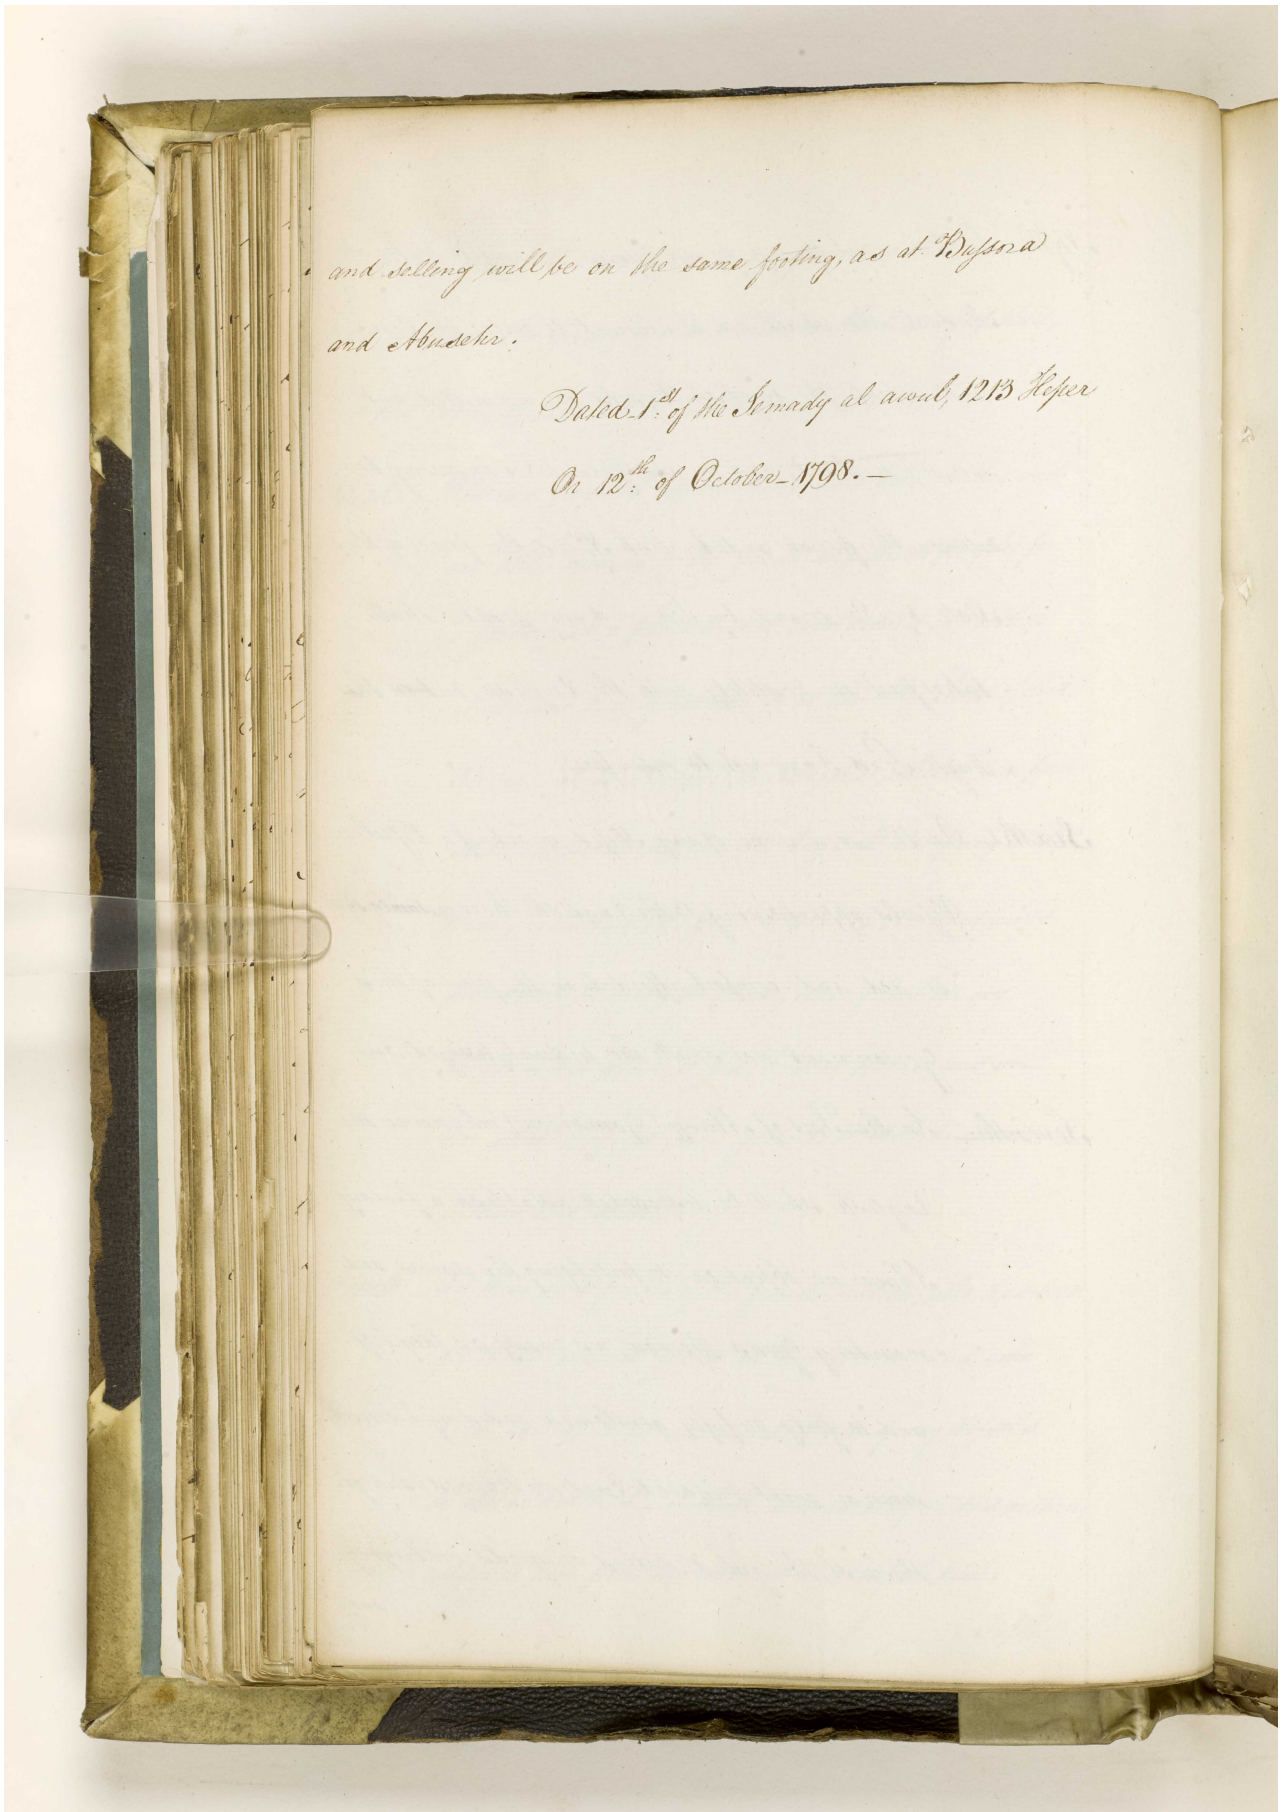 and selling will be on the same footing, as at Bussora
and Abusehr.
Dated 1st of the Jemady al awul, 1213
Or 12th of October 1798. —